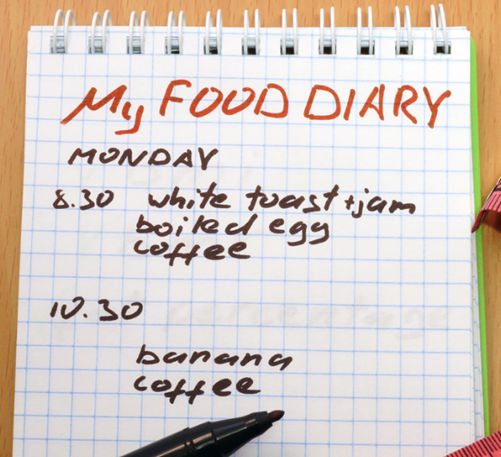 My FOOD DIARY
MONDAY
8.30 white toast+jam
boiled egg
coffee
10.30
banana
coffee